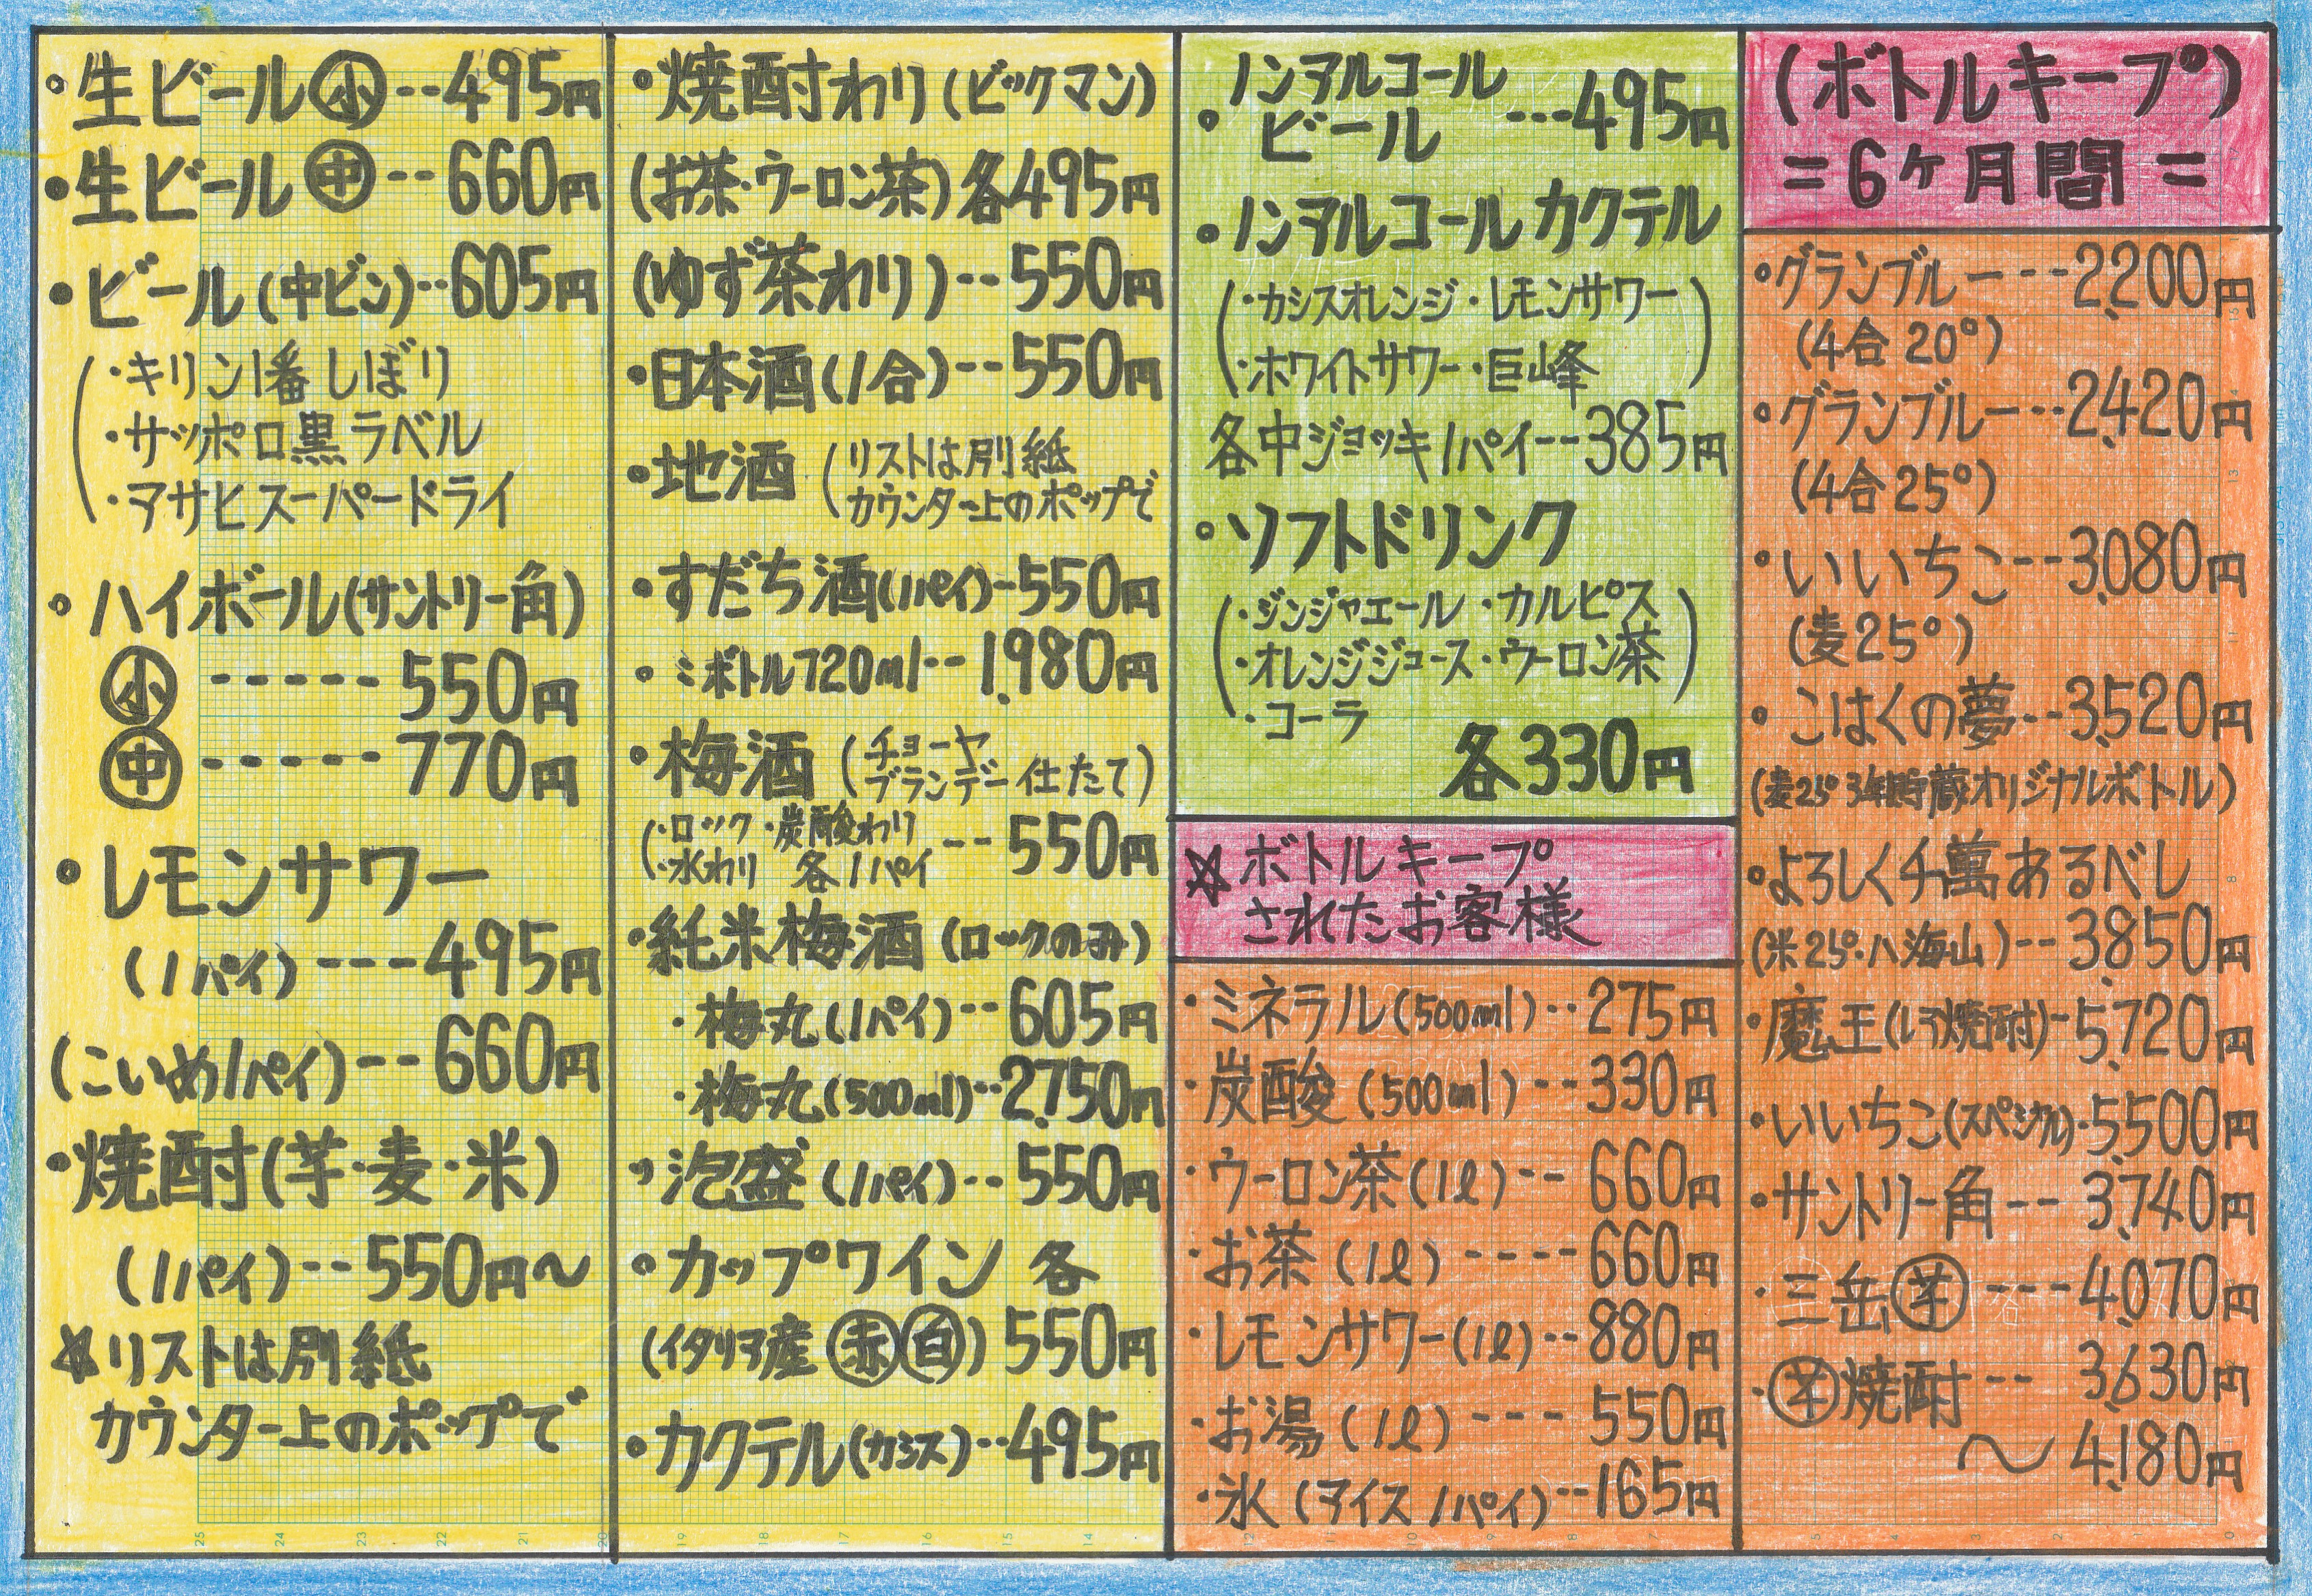 ・生ビール㊙小---495円
・生ビール㊥--660円
・ビール(中ビン)--605円
(・キリン1番しぼり
・サッポロ黒ラベル
・アサヒスーパードライ
・ハイボール(サントリー角)
小-----550円
㊥-----770円
・レモンサワー
(1パイ)---495円
(こいめ1パイ)--660円
・焼酎(芋・麦・米)
(1パイ)--550円〜
☆リストは別紙
カウンター上のポップで
・焼酎わり(ビックマン)
(お茶・ウーロン茶)各495円
(ゆず茶わり)--550円
・日本酒(1合)--550円
・地酒(リストは別紙
カウンター上のポップで
・すだち酒(1パイ)-550円
・〃ボトル720ml--1,980円
・梅酒(チョーヤ
ブランデー仕たて)
(・ロック・炭酸わり
・水わり 各1パイ--550円
・純米梅酒(ロックのみ)
・梅丸(1パイ)--605円
・梅丸(500ml)--2,750円
・泡盛(1パイ)--550円
・カップワイン 各
(イタリア産 赤 白)550円
・カクテル(カシス)--495円
・ノンアルコール
ビール---495円
・ノンアルコールカクテル
(・カシスオレンジ・レモンサワー
・ホワイトサワー・巨峰)
各中ジョッキ1パイ--385円
・ソフトドリンク
(・ジンジャエール・カルピス
・オレンジジュース・ウーロン茶)
・コーラ
各330円
☆ボトルキープ
されたお客様
・ミネラル(500ml)--275円
・炭酸(500ml)--330円
・ウーロン茶(1ℓ)--660円
・お茶(1ℓ)----660円
・レモンサワー(1ℓ)--880円
・お湯(1ℓ)---550円
・氷(アイス1パイ)--165円
(ボトルキープ)
=6ケ月間=
・グランブルー---2,200円
(4合20°)
・グランブルー--2,420円
(4合25°)
・いいちこ--3,080円
(麦25°)
・こはくの夢--3,520円
(麦25°3年貯蔵オリジナルボトル)
・よろしく千萬あるべし
(米25°・八海山)--3,850円
・魔王(レア焼酎)-5,720円
・いいちこ(スペシャル)・5,500円
・サントリー角--3,740円
・三岳芋---4,070円
・芋焼酎--3,630円
〜4,180円